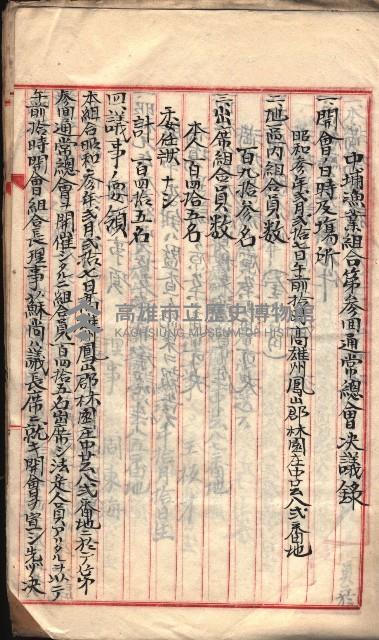 中埔漁業組合第參回通常總會決議錄
一、開會ノ日時及場所
昭和參年貳月貳拾七日午前拾時高雄州鳳山郡林園庄中芸八貳番地
二、地區內組合員數
百九拾參名
三、出席組合員數
本人 百四拾五名
委任狀 ナシ
計 百四拾五名
四、議事ノ要領
本組合昭和參年貳月貳拾七日高雄州鳳山郡林園庄中芸八貳番地ニ於テ第
參回通常總會ヲ開催シタルニ組合員百四拾五名出席シ法定人員アリタルヲ以テ
午前拾時開會組合長理事蘇尚ハ議長席ニ就キ開會ヲ宣シ先ツ決
高雄市立歷史博物館
KAOHSIUNG MUSEUM OF HISTORY